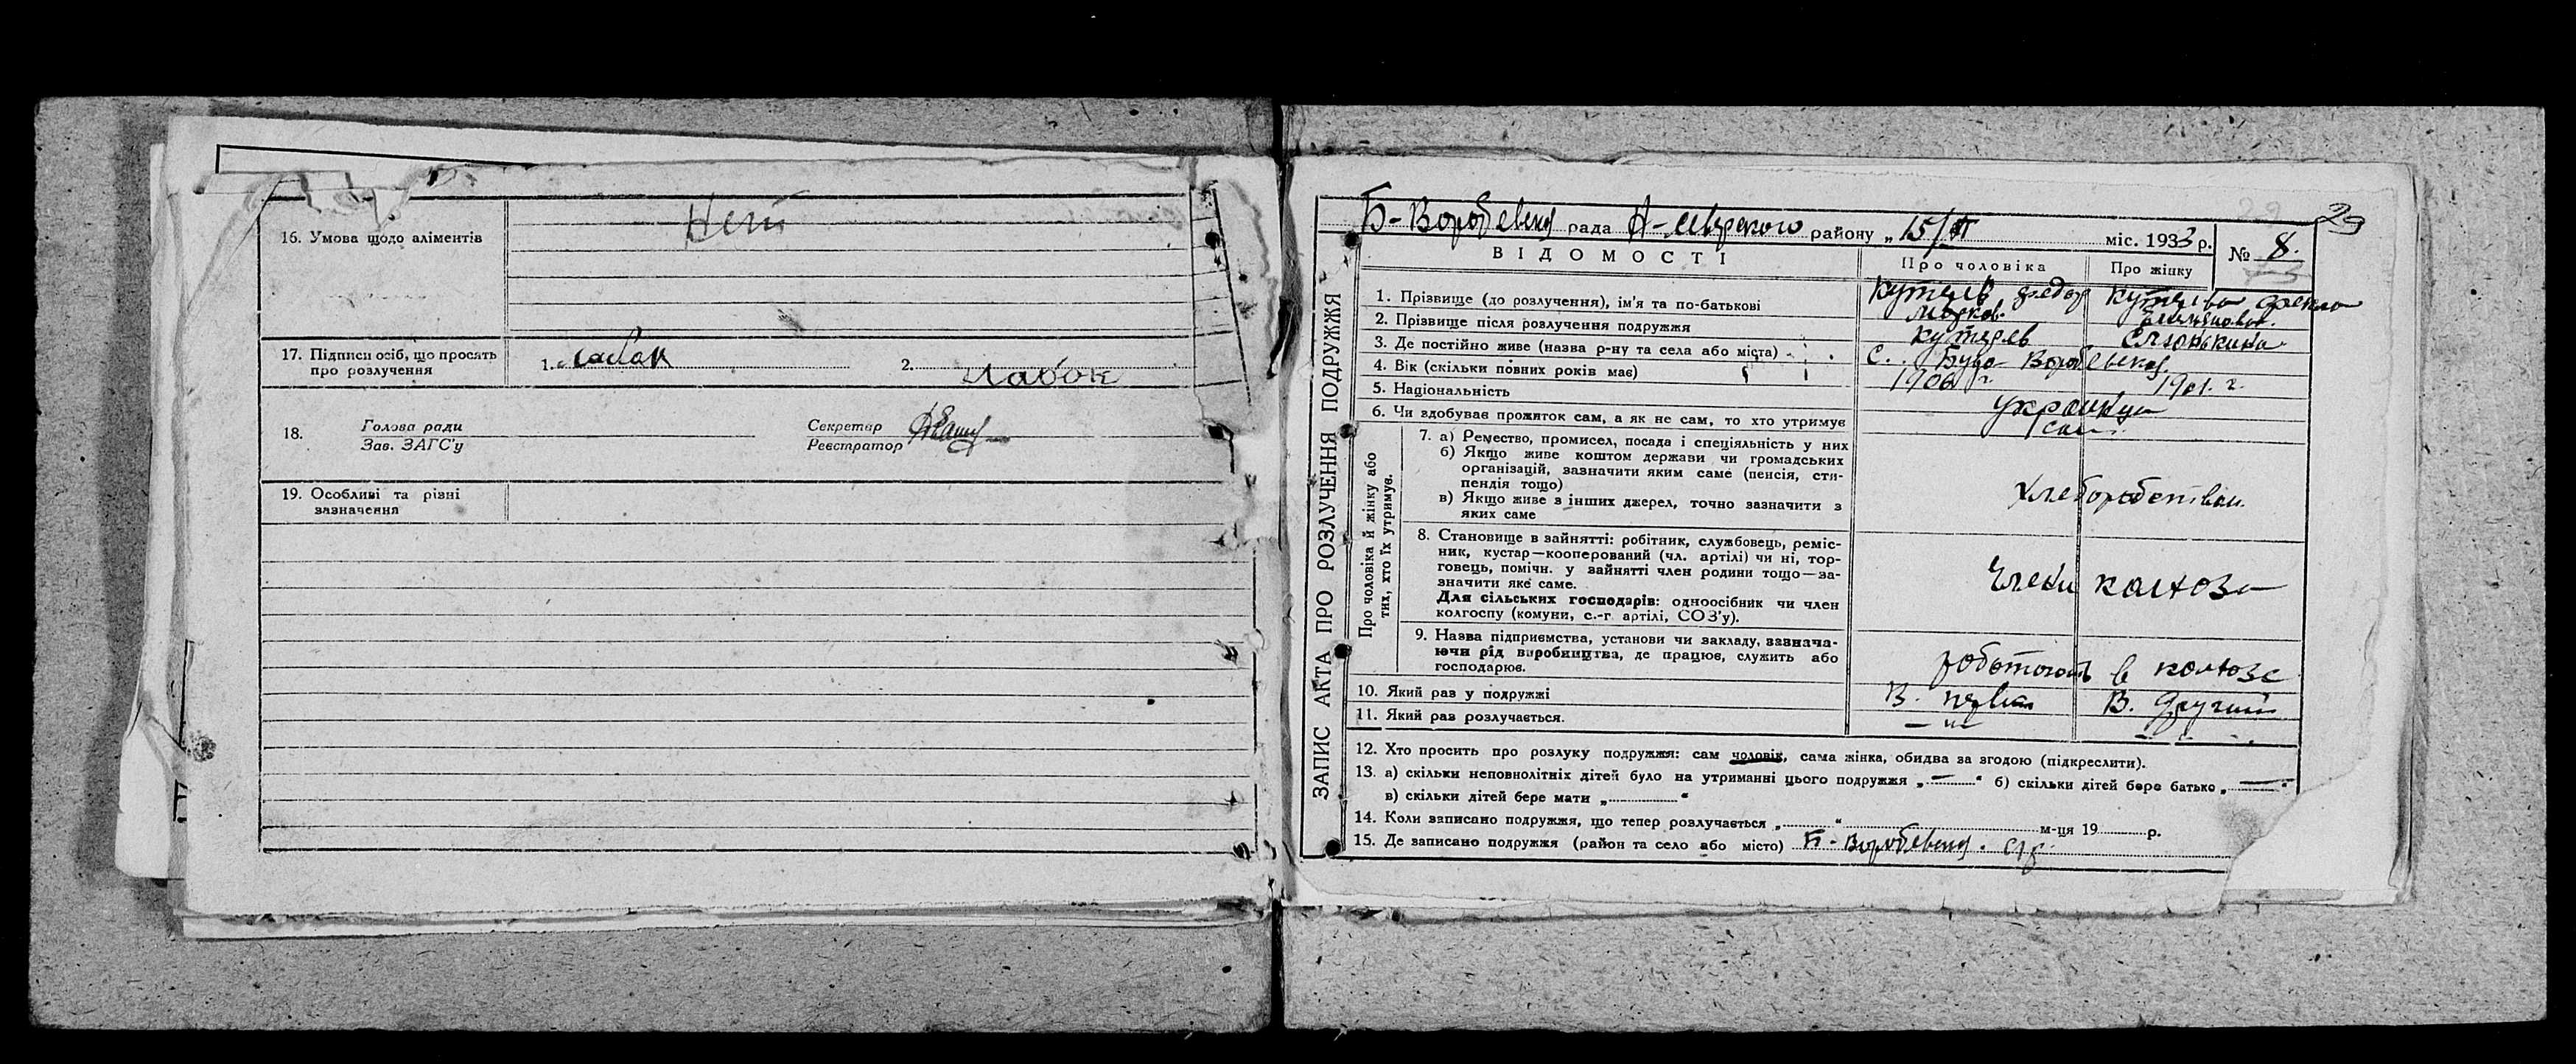 16. Умова щодо аліментів
Нет
17. Підписи осіб, що просять
про розлучення
1.
2.
18.
Голова ради
Зав. ЗАГС'у
Секретар
Реєстратор
19. Особливі та різні
зазначення
29
Б-Воробевская рада Н-Северского району „15/ міс. 1933 р.
№ 8.
ЗАПИС АКТА ПРО РОЗЛУЧЕННЯ ПОДРУЖЖЯ
ВІДОМОСТІ
Про чоловіка
Про жінку
1. Прізвище (до розлучення), ім'я та по-батькові
Федор
Марков.
Фекла
2. Прізвище після розлучення подружжя
3. Де постійно живе (назва р-ну та села або міста)
с. Буда Воробьевская
4. Вік (скільки повних років має)
1906 г.
1901. г.
5. Національність
украинцы
6. Чи здобуває прожиток сам, а як не сам, то хто утримує
сам.
Про чоловіка й жінку або
тих, хто їх утримує.
7. а) Ремество, промисел, посада і спеціяльність у них
б) Якщо живе коштом держави чи громадських
організацій, зазначити яким саме (пенсія, сти-
пендія тощо)
в) Якщо живе з інших джерел, точно зазначити з
яких саме
хлеборобством
8. Становище в зайнятті: робітник, службовець, реміс-
ник, кустар—кооперований (чл. артілі) чи ні, тор-
говець, помічн. у зайнятті член родини тощо—за-
значити яке саме.
Для сільських господарів: одноосібник чи член
колгоспу (комуни, с.-г артілі, СОЗ'у).
члены колхоза
9. Назва підприємства, установи чи закладу, зазнача-
ючи рід виробництва, де працює, служить або
господарює.
работают в колхозе
10. Який раз у подружжі
В. первый
В. другий
11. Який раз розлучається.
— „ —
12. Хто просить про розлуку подружжя: сам чоловік, сама жінка, обидва за згодою (підкреслити).
13. а) скільки неповнолітніх дітей було на утриманні цього подружжя „—“ б) скільки дітей бере батько „—“
в) скільки дітей бере мати „ “
14. Коли записано подружжя, що тепер розлучається „ “ м-ця 19 р.
15. Де записано подружжя (район та село або місто) Б-Воробевская.